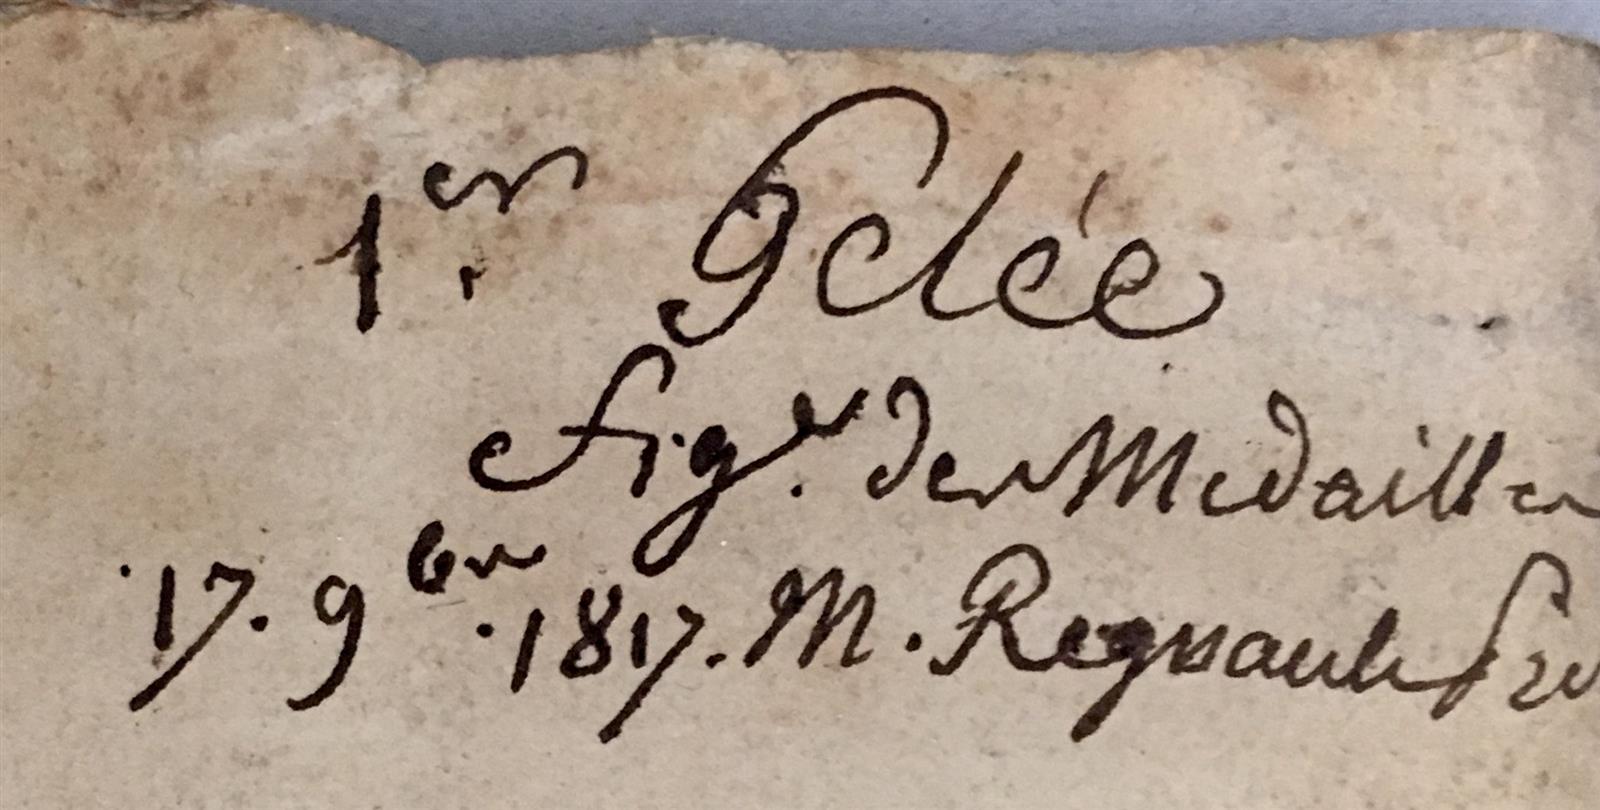 1er. Gelée
fig.re des Medailles
17. 9bre .1817. M. Regnault